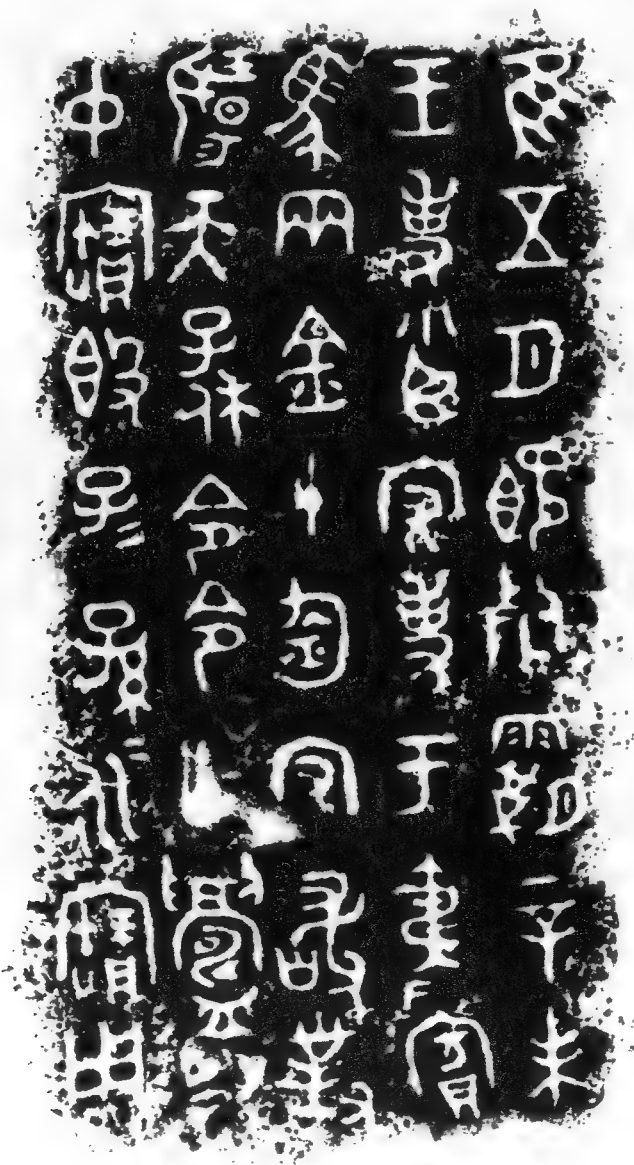 隹五月既死霸辛未
王事小臣守事于夷賓
馬兩金十鈞守敢對
揚天子休令令鑄引
中寶簋子=孫=永寶用